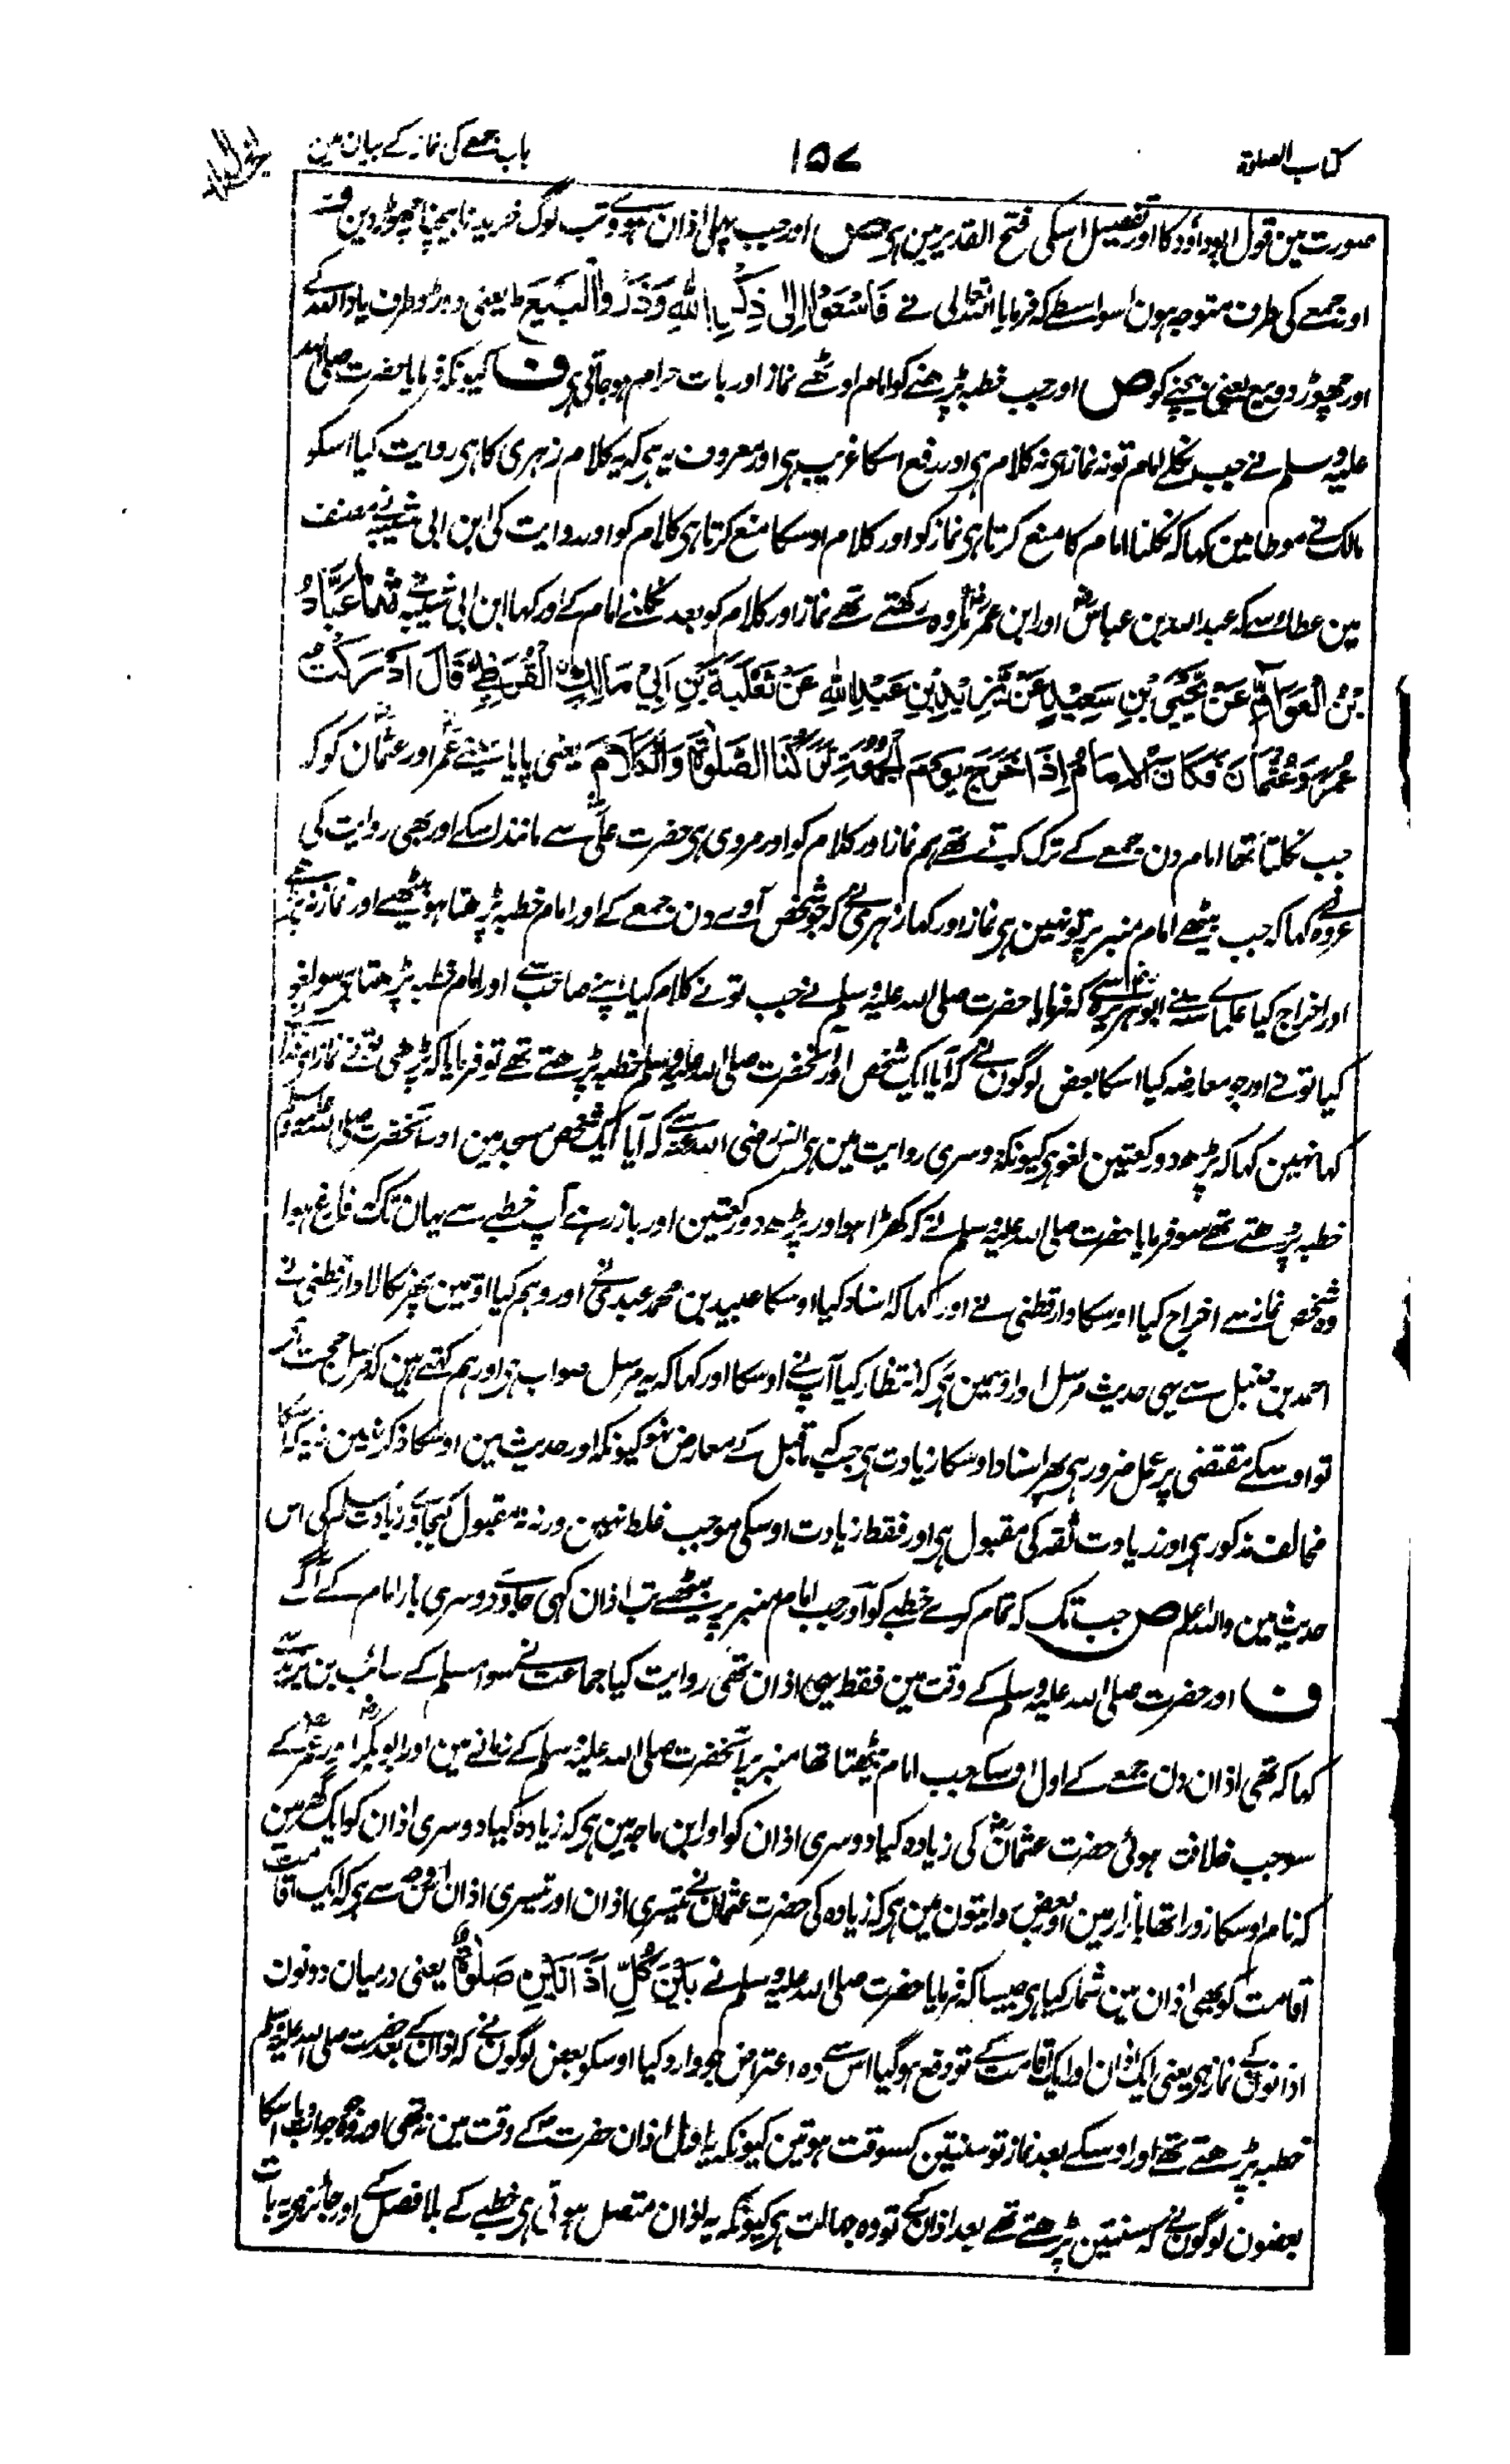 کتاب الصلوة
۱۵۷
باب جمعے کی نماز کے بیان مین
صورت مین قول ابو داؤد کا اور تفصیل اسکی فتح القدیر مین ہی ص اور جب پہلی اذان ہووے تب لوگ خریدنا بیچنا چھوڑ دین ف
اور جمعے کی طرف متوجہ ہون اسواسطے کہ فرمایا اللہ تعالی نے فَاسْعَوْا اِلٰی ذِکْرِ اللّٰهِ وَذَرُوا الْبَیْعَ ط یعنی دوڑو طرف یاد اللہ کے
اور چھوڑ دو بیع یعنی بیچنے کو ص اور جب خطبہ پڑھنے کو امام اوٹھے نماز اور بات حرام ہو جاتی ہی ف کیونکہ فرمایا حضرت صلی اللہ
علیہ وسلم نے جب نکلے امام تو نہ نماز ہی نہ کلام ہی اور رفع اسکا غریب ہی اور معروف یہ ہی کہ یہ کلام زہری کا ہی روایت کیا اسکو
مالک نے موطا مین کہا کہ نکلنا امام کا منع کرتا ہی نماز کو اور کلام اوسکا منع کرتا ہی کلام کو اور روایت کی ابن ابی شیبہ نے مصنف
مین عطا سے کہ عبد اللہ بن عباس اور ابن عمر مکروہ رکھتے تھے نماز اور کلام کو بعد نکلنے امام کے اور کہا ابن ابی شیبہ نے ثَنَا عَبَّادُ
بْنُ الْعَوَّامِ عَنْ یَحْیَی بْنِ سَعِیْدٍ عَنْ یَزِیْدَ بْنِ عَبْدِ اللّٰهِ عَنْ ثَعْلَبَةَ بْنِ اَبِیْ مَالِكٍ الْقُرَظِیِّ قَالَ اَدْرَكْتُ
عُمَرَ وَعُثْمَانَ فَكَانَ الْاِمَامُ اِذَا خَرَجَ یَوْمَ الْجُمُعَةِ تَرَكْنَا الصَّلٰوةَ وَالْكَلَامَ یعنی پایا مینے عمر اور عثمان کو کہ
جب نکلتا تھا امام دن جمعے کے ترک کرتے تھے ہم نماز اور کلام کو اور مروی ہی حضرت علی سے مانند اسکے اور بھی روایت کی
عروہ نے کہا کہ جب بیٹھے امام منبر پر تو نہین ہی نماز اور کہا زہری نے کہ جو شخص آوے دن جمعے کے اور امام خطبہ پڑھتا ہو بیٹھے اور نماز نہ پڑھے
اور اخراج کیا ابوہریرہ سے کہ فرمایا حضرت صلی اللہ علیہ وسلم نے جب تو نے کلام کیا اپنے صاحب سے اور امام خطبہ پڑھتا ہی سو لغو
کیا تو نے اور جو معارضہ کیا اسکا بعض لوگون نے کہ آیا ایک شخص اور آنحضرت صلی اللہ علیہ وسلم خطبہ پڑھتے تھے تو فرمایا کہ پڑھی تو نے نماز
کہا نہین کہا کہ پڑھ دو رکعتین لغو ہی کیونکہ دوسری روایت مین ہی انس رضی اللہ عنہ سے کہ آیا ایک شخص مسجد مین اور آنحضرت صلی اللہ علیہ وسلم
خطبہ پڑھتے تھے سو فرمایا حضرت صلی اللہ علیہ وسلم نے کہ کھڑا ہو اور پڑھ دو رکعتین اور باز رہے آپ خطبے سے یہان تک کہ فارغ ہوا
وہ شخص نماز سے اخراج کیا اوسکا دارقطنی نے اور کہا کہ اسناد کیا اوسکا عبید بن محمد عبدی نے اور وہم کیا اوسمین پھر نکالا دارقطنی نے
احمد بن حنبل سے یہی حدیث مرسل اور اوسمین ہی کہ انتظار کیا آپ نے اوسکا اور کہا کہ یہ مرسل صواب ہی اور ہم کہتے ہین کہ مرسل حجت ہی
تو اوسکے مقتضی پر عمل ضرور ہی پھر اسناد اوسکا زیادت ہی جب کہ ماقبل کے معارض نہو کیونکہ اور حدیث مین اوسکا ذکر نہین نہ یہ کہ اسکا
مخالف مذکور ہی اور زیادت ثقہ کی مقبول ہی اور فقط زیادت اوسکی موجب غلط نہین ورنہ نہ مقبول کیجاوے زیادت مسلم کی اس
حدیث مین واللہ اعلم ص جب تک کہ تمام کرے خطبے کو اور جب امام منبر پر بیٹھے تب اذان کہی جاوے دوسری بار امام کے آگے
ف اور حضرت صلی اللہ علیہ وسلم کے وقت مین فقط یہی اذان تھی روایت کیا جماعت نے سوا مسلم کے سائب بن یزید سے
کہا کہ تھی اذان دن جمعے کے اول اوسکے جب امام بیٹھتا تھا منبر پر آنحضرت صلی اللہ علیہ وسلم کے زمانے مین اور ابوبکر اور عمر کے
سو جب خلافت ہوئی حضرت عثمان کی زیادہ کیا دوسری اذان کو اور ابن ماجہ مین ہی کہ زیادہ کیا دوسری اذان کو ایک گھر مین
کہ نام اوسکا زورا تھا بازار مین اور بعض روایتون مین ہی کہ زیادہ کی حضرت عثمان نے تیسری اذان اور تیسری اذان اس غرض سے ہی کہ ایک اقامت
اقامت کو بھی اذان مین شمار کیا ہی جیسا کہ فرمایا حضرت صلی اللہ علیہ وسلم نے بَیْنَ كُلِّ اَذَانَیْنِ صَلٰوةٌ یعنی درمیان دونون
اذانون کے نماز ہی یعنی ایک اذان اور ایک اقامت کے تو دفع ہو گیا اس سے وہ اعتراض جو وارد کیا اوسکو بعض لوگون نے کہ اذان کے بعد حضرت صلی اللہ علیہ وسلم
خطبہ پڑھتے تھے اور اوسکے بعد نماز تو سنتین کسوقت ہوتین کیونکہ یہ اول اذان حضرت کے وقت مین نہ تھی اور وہ جو جواب دیا اسکا
بعضون لوگون نے کہ سنتین پڑھتے تھے بعد اذان کے تو وہ جہالت ہی کیونکہ یہ اذان متصل ہوتی ہی خطبے کے بلا فصل کے اور جائز ہی یہ بات